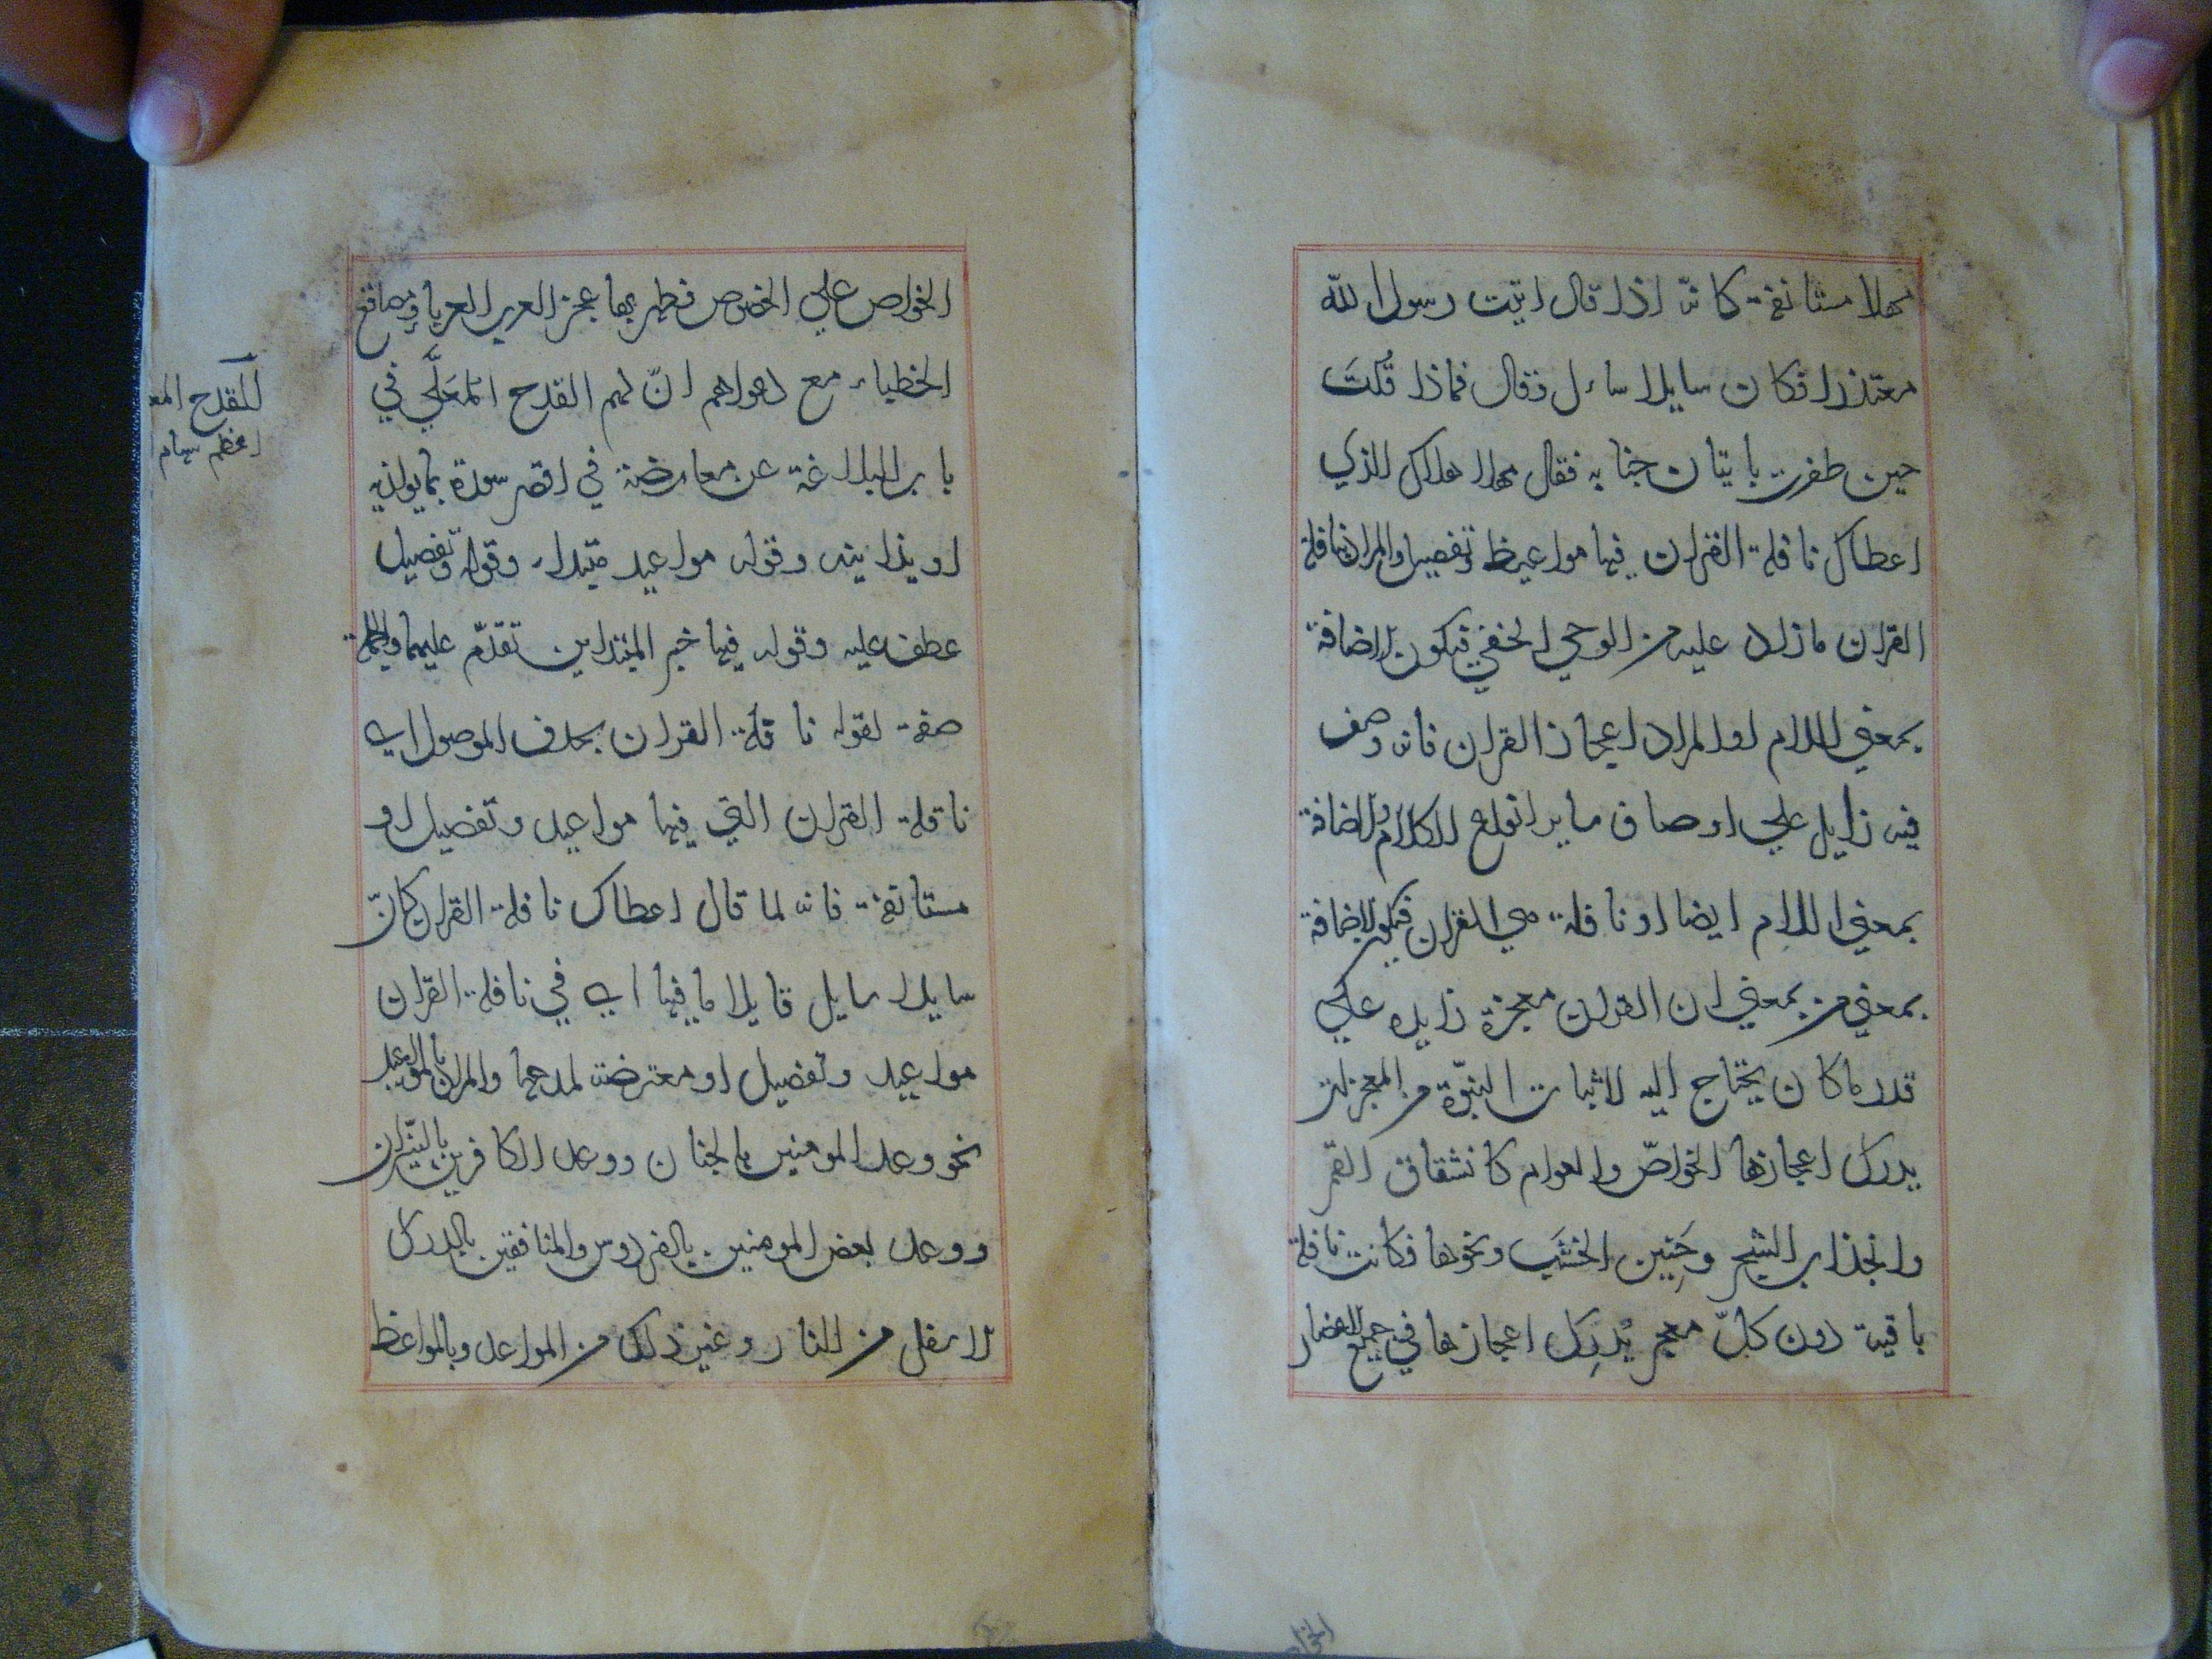 مهلا مستانفة كانه اذا قال اتيت رسول الله
معتذرا فكان سايلا سأل فقال فماذا قُلتَ
حين ظفرت باتيان جنابه فقال مهلا هداك الذي
اعطاك نافلة القران فيها مواعيظ وتفصيل والمراد بنافلة
القران ما زاد عليه من الوحي الخفي فيكون الاضافة
بمعني اللام او المراد اعجاز القران فانه وصف
فيه زايد علي اوصاف ساير انواع الكلام والاضافة
بمعني اللام ايضا او نافلة هي القران فيكون الاضافة
بمعني من بمعني ان القران معجزة زايده علي
قدر ما كان يحتاج اليه لاثبات النبوّة من المعجزات
يدرك اعجازها الخواصّ والعوام كانشقاق القمر
وانجذاب الشجر وحَنِين الخشَب ونحوها فكانت نافلة
باقية دون كلّ معجز يُدرك اعجازها في جميع الاعصار
الخواص علي الخصوص فظهر بها عجز العرب العربا ومصاقع
الخطباء مع دعواهم انّ لهم القدح المُعَلَّي في
باب البلاغة عن معارضة في اقصر سورة بما يوازيه
او يدانيه وقوله مواعيد مبتداء وقوله وتفصيل
عطف عليه وقوله فيها خبر المبتداين تقدّم عليهما والجملة
صفة لقوله نافلة القران بحذف الموصول اي
نافلة القران التي فيها مواعيد وتفصيل او
مستانفة فانه لما قال اعطاك نافلة القران كانّ
سايلا سايل قايلا ما فيها اي في نافلة القران
مواعيد وتفصيل او معترضة لمدحها والمراد بالمواعيد
نحو وعد المومنين بالجنان ووعد الكافرين بالنيّران
ووعد بعض المومنين بالفردوس والمنافقين بالدرك
الاسفل من النار وغير ذلك من المواعد وبالمواعظ
القدح المع
اعظم سهام ا